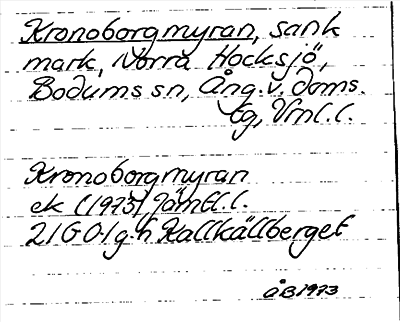 Kronoborgmyran, sank
mark, Norra Hocksjö,
Bodums sn, Ång.v. doms.
tg, Vrnl.l.
Kronoborgmyran
ek (1973) Jämtl.l.
21G 0-1 g-h Kallkällberget
ÅB 1973